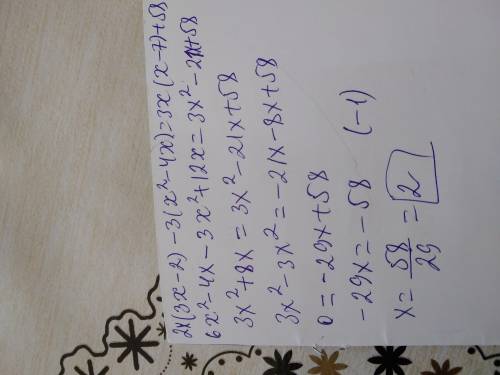 2x(3x-2)-3(x²-4x)=3x(x-7)+58
6x²-4x-3x²+12x=3x²-21x+58
3x²+8x=3x²-21x+58
3x²-3x²=-21x-8x+58
0=-29x+58
-29x=-58 (-1)
x=58/29=2